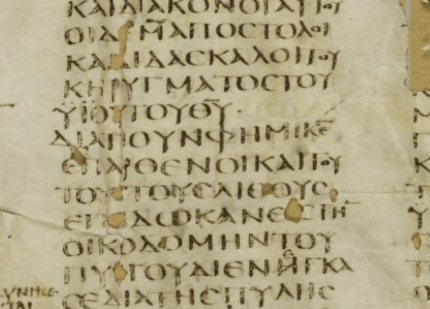 ΚΑΙΔΙΑΚΟΝΟΙΑΥΤΟΥ
ΟΙΔΕΜ̅ΑΠΟϹΤΟΛΟΙ
ΚΑΙΔΙΔΑϹΚΑΛΟΙΤΟΥ
ΚΗΡΥΓΜΑΤΟϹΤΟΥ
ΥΙΟΥΤΟΥΘ̅Υ̅·
ΔΙΑΤΙΟΥΝΦΗΜΙΚ̅Ε̅
ΕΠΑΡΘΕΝΟΙΚΑΙΤΟΥ
ΤΟΥϹΤΟΥϹΛΙΘΟΥϹ
ΕΠΕΔΩΚΑΝΕΙϹΤΗ̅
ΟΙΚΟΔΟΜΗΝΤΟΥ
ΠΥΡΓΟΥΔΙΕΝΗΓΚΑ
ϹΕΔΙΑΤΗϹΠΥΛΗϹ